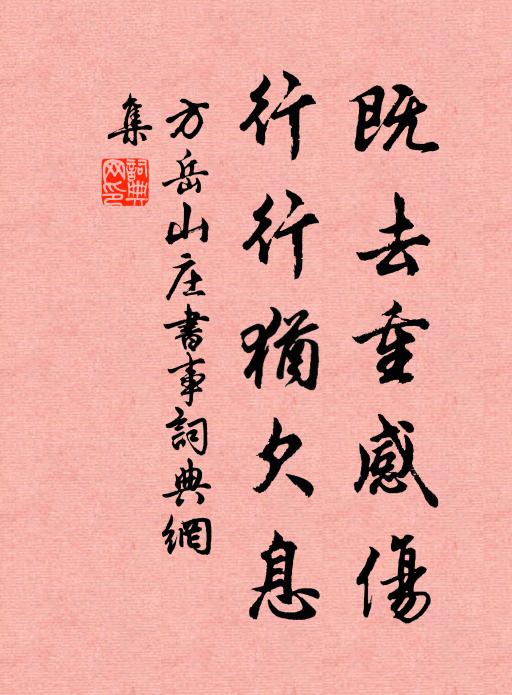 既去重感傷
行行猶久息
方岳山庄書事詞典網
集
詞典
网印